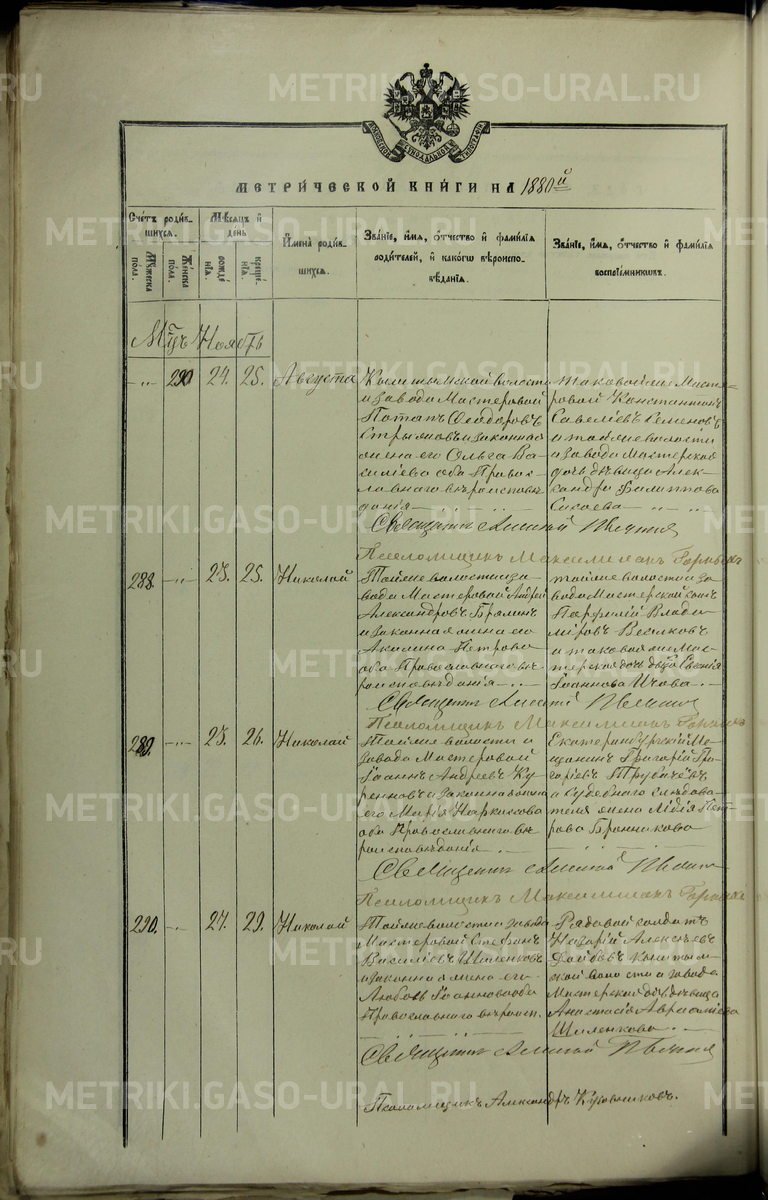 METRIKI.GASO-URAL.RU
МЕТРИ́ЧЕСКОЙ КНИ́ГИ НА 1880й
Сче́тъ роди́в-
шихся.
Мꙋжеска пола.
Же́нска пола.
Мѣ́сяцъ и
день
рожде́нїя.
креще́нїя.
Имена̀ роди́в-
шихся.
Зва́нїе, и́мя, о́тчество и фами́лїя
роди́телей, и како́гѡ вѣроиспо-
вѣ́данїя.
Зва́нїе, и́мя, о́тчество и фами́лїя
воспрїе́мникѡвъ.
Мцъ Ноябрь
290 24. 25. Августа
Кыштымской волости
и завода Мастеровой
Потапъ Ѳеодоровъ
и законная
жена его Ольга Ва-
силіева оба Правос-
лавнаго вѣроисповѣ-
данія
таковой же Масте-
ровой Константинъ
Савеліевъ Семеновъ
и той же волости
и завода Мастерская
дочь дѣвица Алек-
сандра Филиппова
Сысоева
Священникъ Алексій
Псаломщикъ Максимиліанъ
288. 23. 25. Николай
Той же волости и за-
вода Мастеровой Андрей
Александровъ
и законная жена его
Акилина Петрова
оба Православнаго вѣ-
роисповѣданія
той же волости и за-
вода Мастерской сынъ
Парфилій Влади-
міровъ
и таковая же Мас-
терская дочь двца Евгенія
Іоаннова
Священникъ Алексій
Псаломщикъ Максимиліанъ
289. 23. 26. Николай
Той же волости и
завода Мастеровой
Іоаннъ Андреевъ Ку-
ренновъ и законная жена
его Марія Наркисова
оба Православнаго вѣ-
роисповѣданія
Екатеринбургскій Мѣ-
щанинъ Григорій Гри-
горіевъ Трубачевъ
и Судебнаго слѣдова-
теля жена Лидія Пет-
рова Бронникова
Священникъ Алексій
Псаломщикъ Максимиліанъ
290. 27. 29. Николай
Той же волости и завода
Мастеровой Стефанъ
Василіевъ Шиленковъ
и законная жена его
Любовь Іоаннова оба
Православнаго вѣроисп.
Рядовой солдатъ
Назарій Алексѣевъ
Кыштым-
ской волости и завода
Мастерская дочь дѣвица
Анастасія Аврааміева
Шиленкова
Священникъ Алексій
Псаломщикъ Александръ